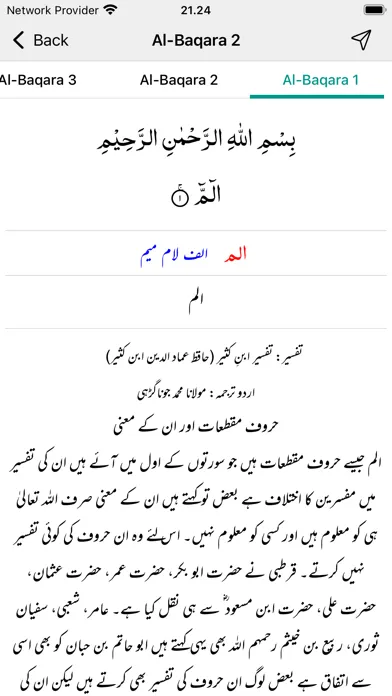 Network Provider 21.24
Back Al-Baqara 2
Al-Baqara 3 Al-Baqara 2 Al-Baqara 1
بِسْمِ اللّٰهِ الرَّحْمٰنِ الرَّحِیْمِ
الٓمّٓ ۚ﴿۱﴾
الم الف لام میم
الم
تفسیر: تفسیر ابنِ کثیر (حافظ عماد الدین ابن کثیر)
اردو ترجمہ: مولانا محمد جوناگڑہی
حروف مقطعات اور ان کے معنی
الم جیسے حروف مقطعات ہیں جو سورتوں کے اول میں آئے ہیں ان کی تفسیر
میں مفسرین کا اختلاف ہے بعض تو کہتے ہیں ان کے معنی صرف اللہ تعالیٰ
ہی کو معلوم ہیں اور کسی کو معلوم نہیں۔ اس لئے وہ ان حروف کی کوئی تفسیر
نہیں کرتے۔ قرطبی نے حضرت ابو بکر، حضرت عمر، حضرت عثمان،
حضرت علی، حضرت ابن مسعود ؓ سے ہی نقل کیا ہے۔ عامر، شعبی، سفیان
ثوری، ربیع بن خیثم رحمہم اللہ بھی یہی کہتے ہیں ابو حاتم بن حبان کو بھی اسی
سے اتفاق ہے بعض لوگ ان حروف کی تفسیر بھی کرتے ہیں لیکن ان کی